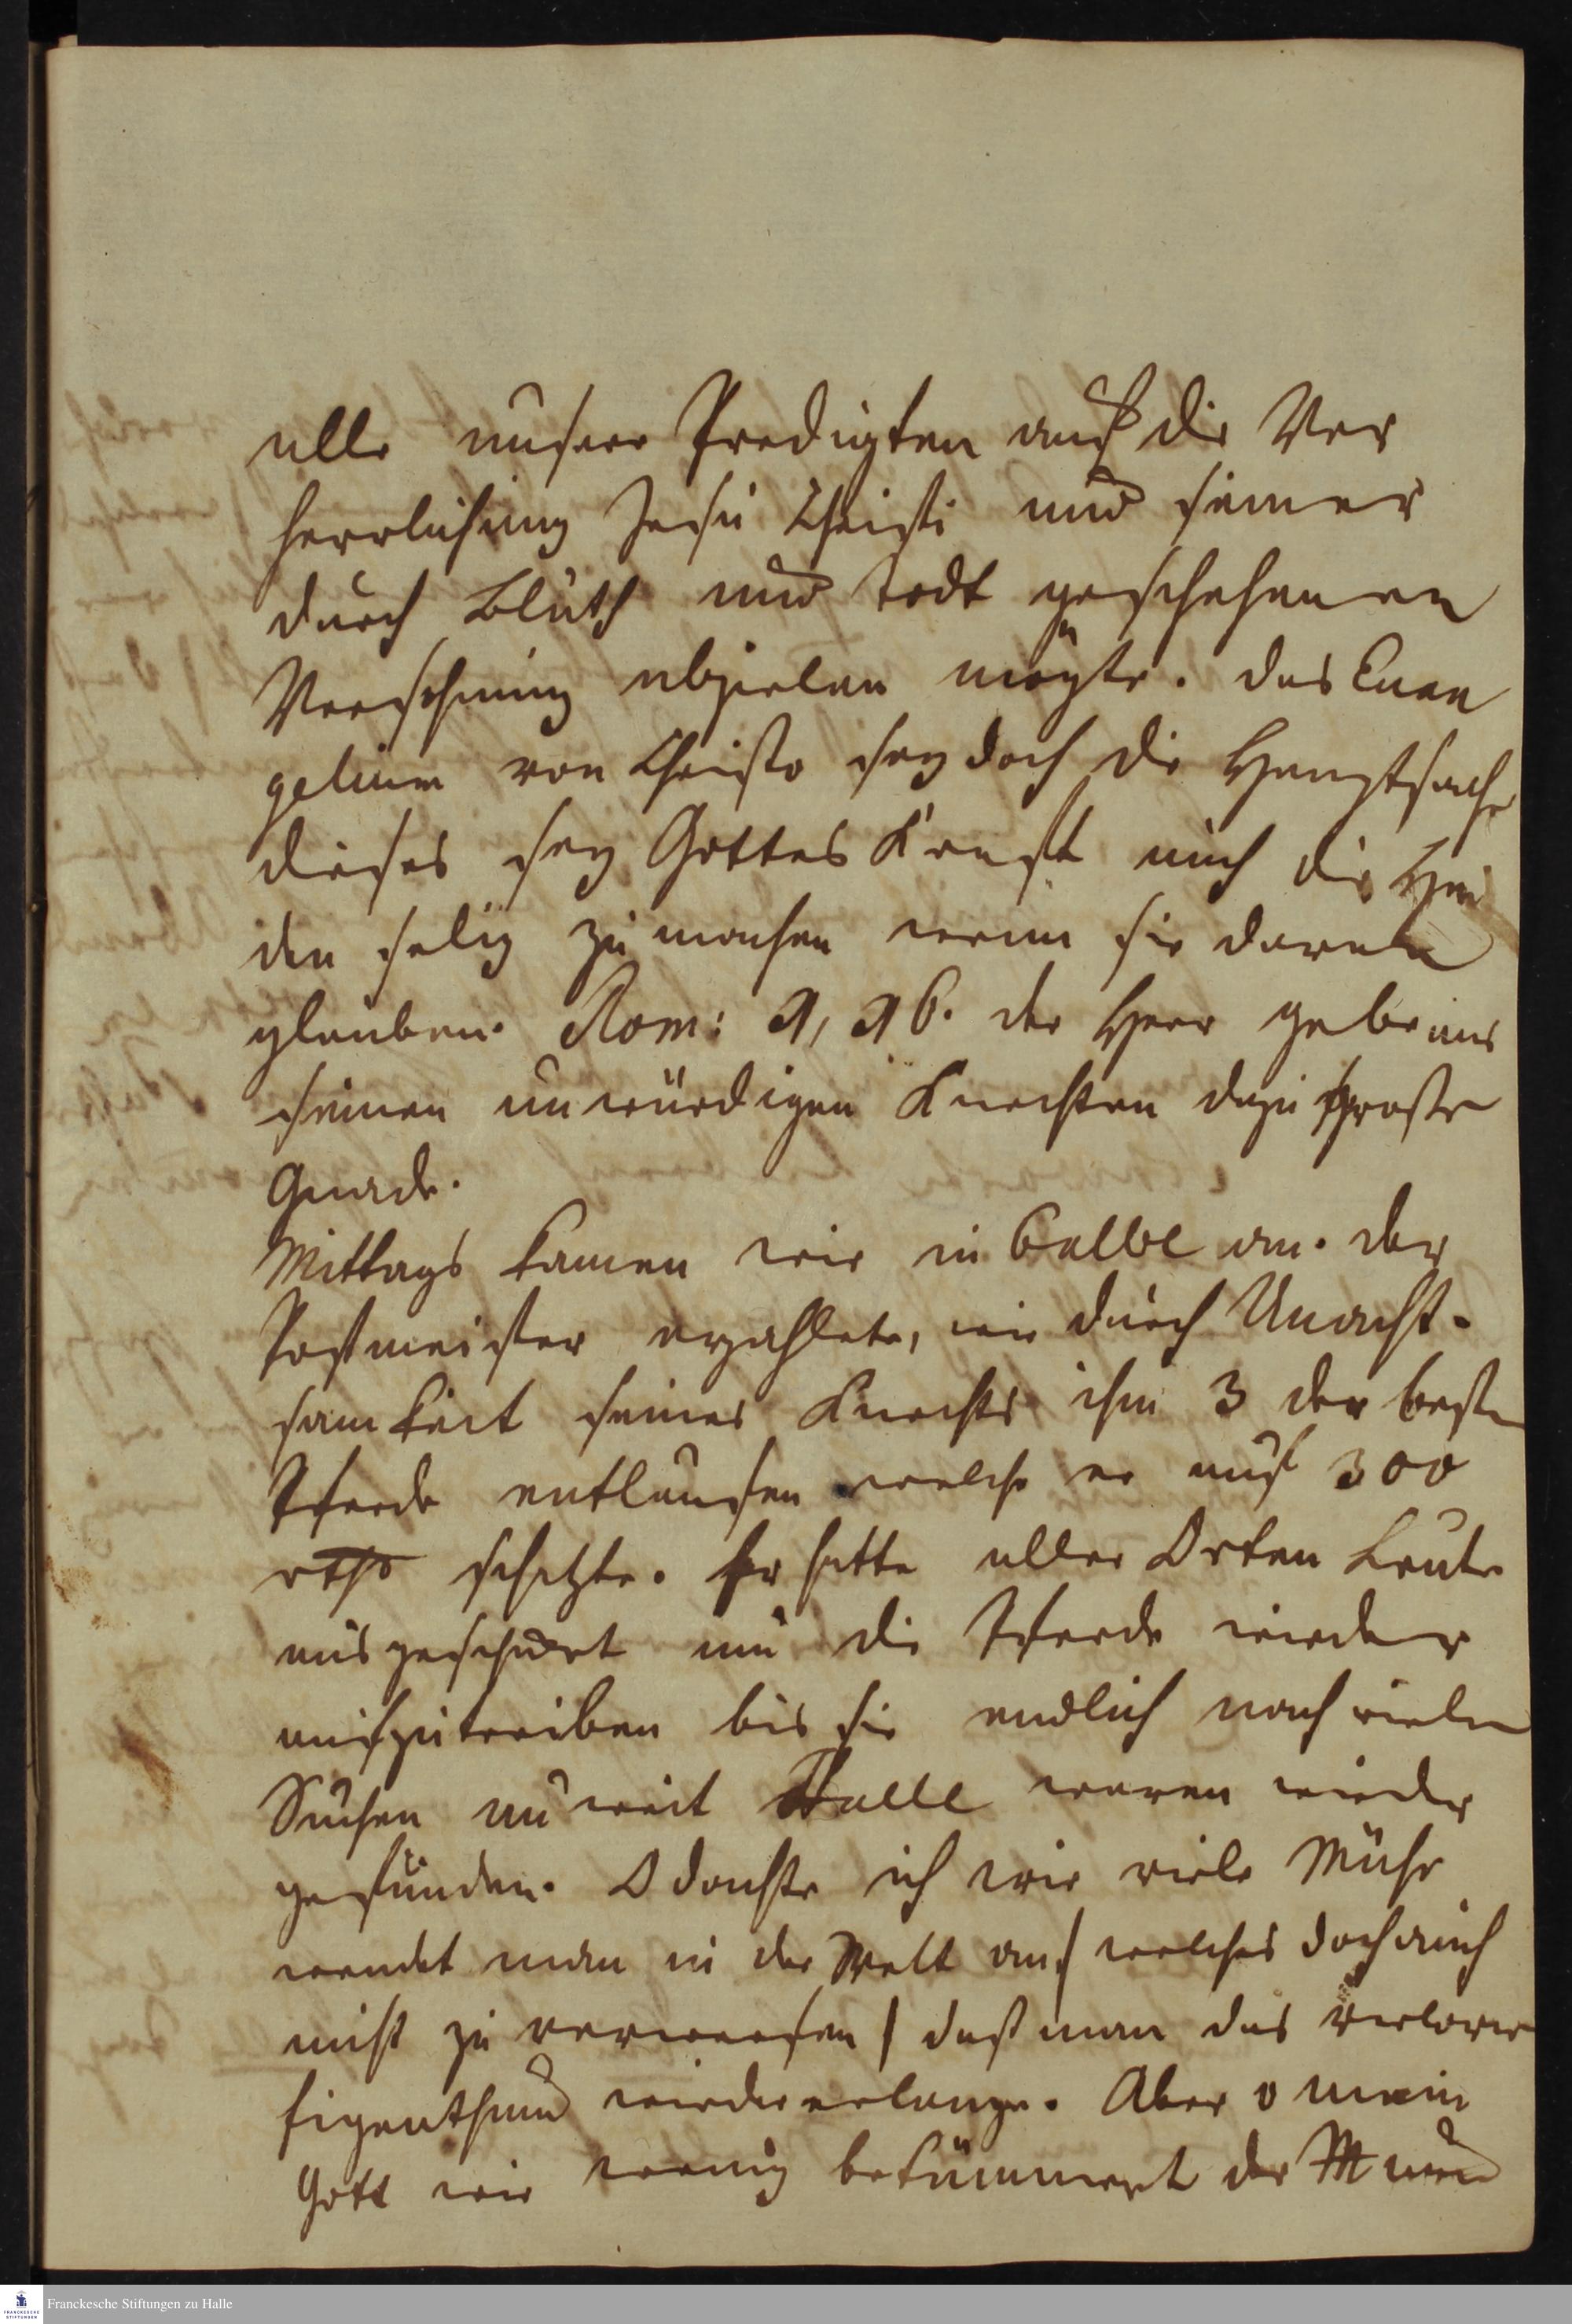 alle unsere Predigten auf die Ver
herrlichung Jesu Christi und seiner
durch Bluth und todt geschehenen
Versohnung abzielen mögte. das Euan
gelium von Christo sey doch die Hauptsache
dieses sey Gottes Krafft auch die Hei
den selig zu machen wenn sie daran
glauben. Rom: 1, 16. der Herr gebe uns
seinen unwürdigen Knechten dazu große
Gnade.
Mittags kamen wir in Calbe an. der
Postmeister erzahlete, wie durch Unacht-
samkeit seines Knechts ihm 3 der besten
Pferde entlaufen welche er auf 300
rthl schätzte. Er hatte aller Orten Leute
ausgeschickt um die Pferde wieder
aufzutreiben bis sie endlich nach vielen
Suchen unweit Halle waren wieder
gefunden. O dachte ich wie viele Mühe
wendet man in der Welt an / welches doch auch
nicht zu verwerfen / daß man das verlorne
Eigenthum wieder erlange. Aber o mein
Gott wie wenig bekümmert der
Franckesche Stiftungen zu Halle
FRANCKESCHE STIFTUNGEN